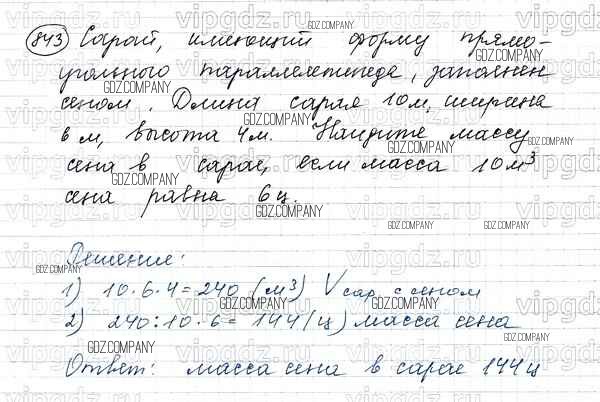 843 Сарай, имеющий форму прямо-
угольного параллелепипеда, заполнен
сеном. Длина сарая 10м, ширина
6 м, высота 4м. Найдите массу
сена в сарае, если масса 10м³
сена равна 6ц.
Решение:
1) 10·6·4=240 (м³) Vсар. с сеном
2) 240:10·6=144(ц) масса сена
Ответ: масса сена в сарае 144ц